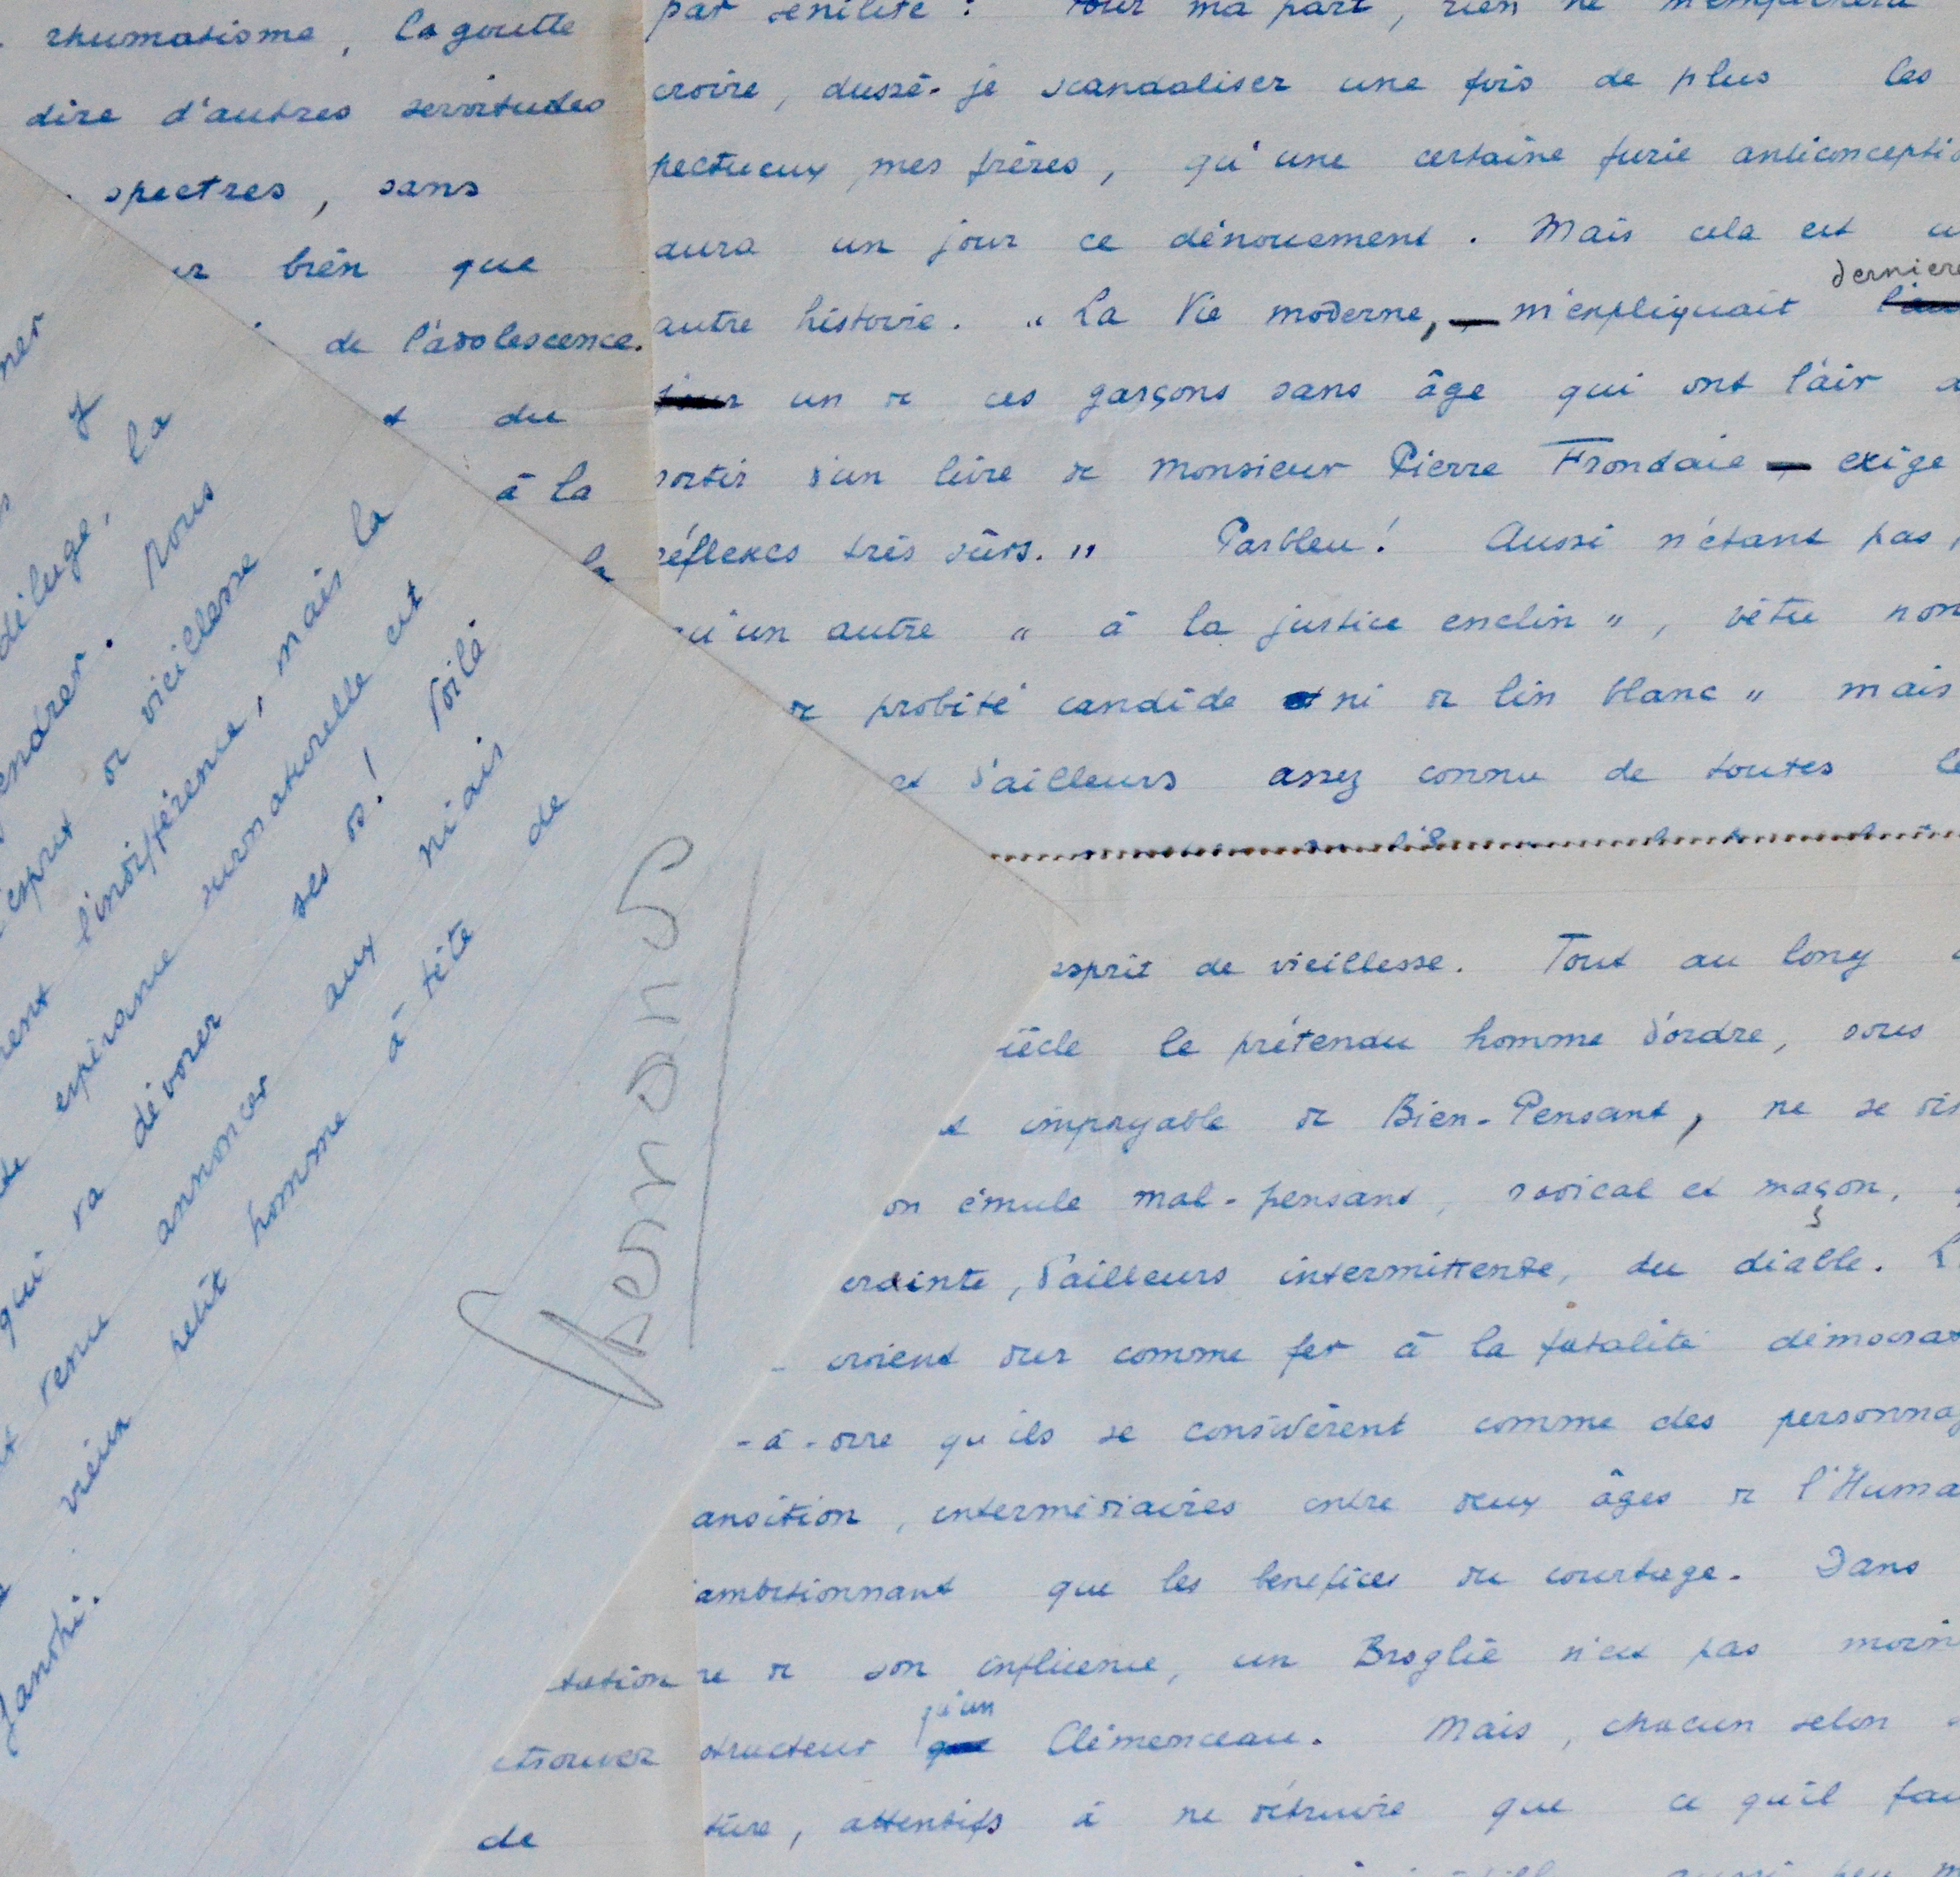 rhumatisme, la goutte
dire d'autres servitudes
spectres, sans
bien que
de l'adolescence.
du
à la
par sénilité ! Pour ma part, rien ne m'empêchera
croire, dussé-je scandaliser une fois de plus les
pectueux, mes frères, qu'une certaine furie anticonceptio
aura un jour ce dénouement. Mais cela est u
autre histoire. "La Vie moderne, — m'expliquait dernière
un de ces garçons sans âge qui ont l'air d
sortir d'un livre de Monsieur Pierre Frondaie — exige
réflexes très sûrs." Parbleu! Aussi n'étant pas,
qu'un autre "à la justice enclin", vêtu non
de probité candide ni de lin blanc" mais
et d'ailleurs assez connu de toutes le
esprit de vieillesse. Tout au long d
iècle le prétendu homme d'ordre, sous
impayable de Bien-Pensant, ne se dis
on émule mal-pensant, radical et maçon,
crainte, d'ailleurs intermittente, du diable. L
croient dur comme fer à la fatalité démocrat
-à-dire qu'ils se considèrent comme des personnag
ansition, intermédiaires entre deux âges de l'Huma
ambitionnant que les bénéfices du courtage. Dans
re de son influence, un Broglie n'est pas moin
structeur qu'un Clémenceau. Mais, chacun selon s
ture, attentifs à ne détruire que ce qu'il fau
tation
etrouver
de
ner
y
déluge, la
endrer. Nous
esprit de vieillesse
ment l'indifférence, mais la
espérance surnaturelle est
qui va dévorer ses os! Voilà
venu annoncer aux niais
vieux petit homme à tête de
Bernanos